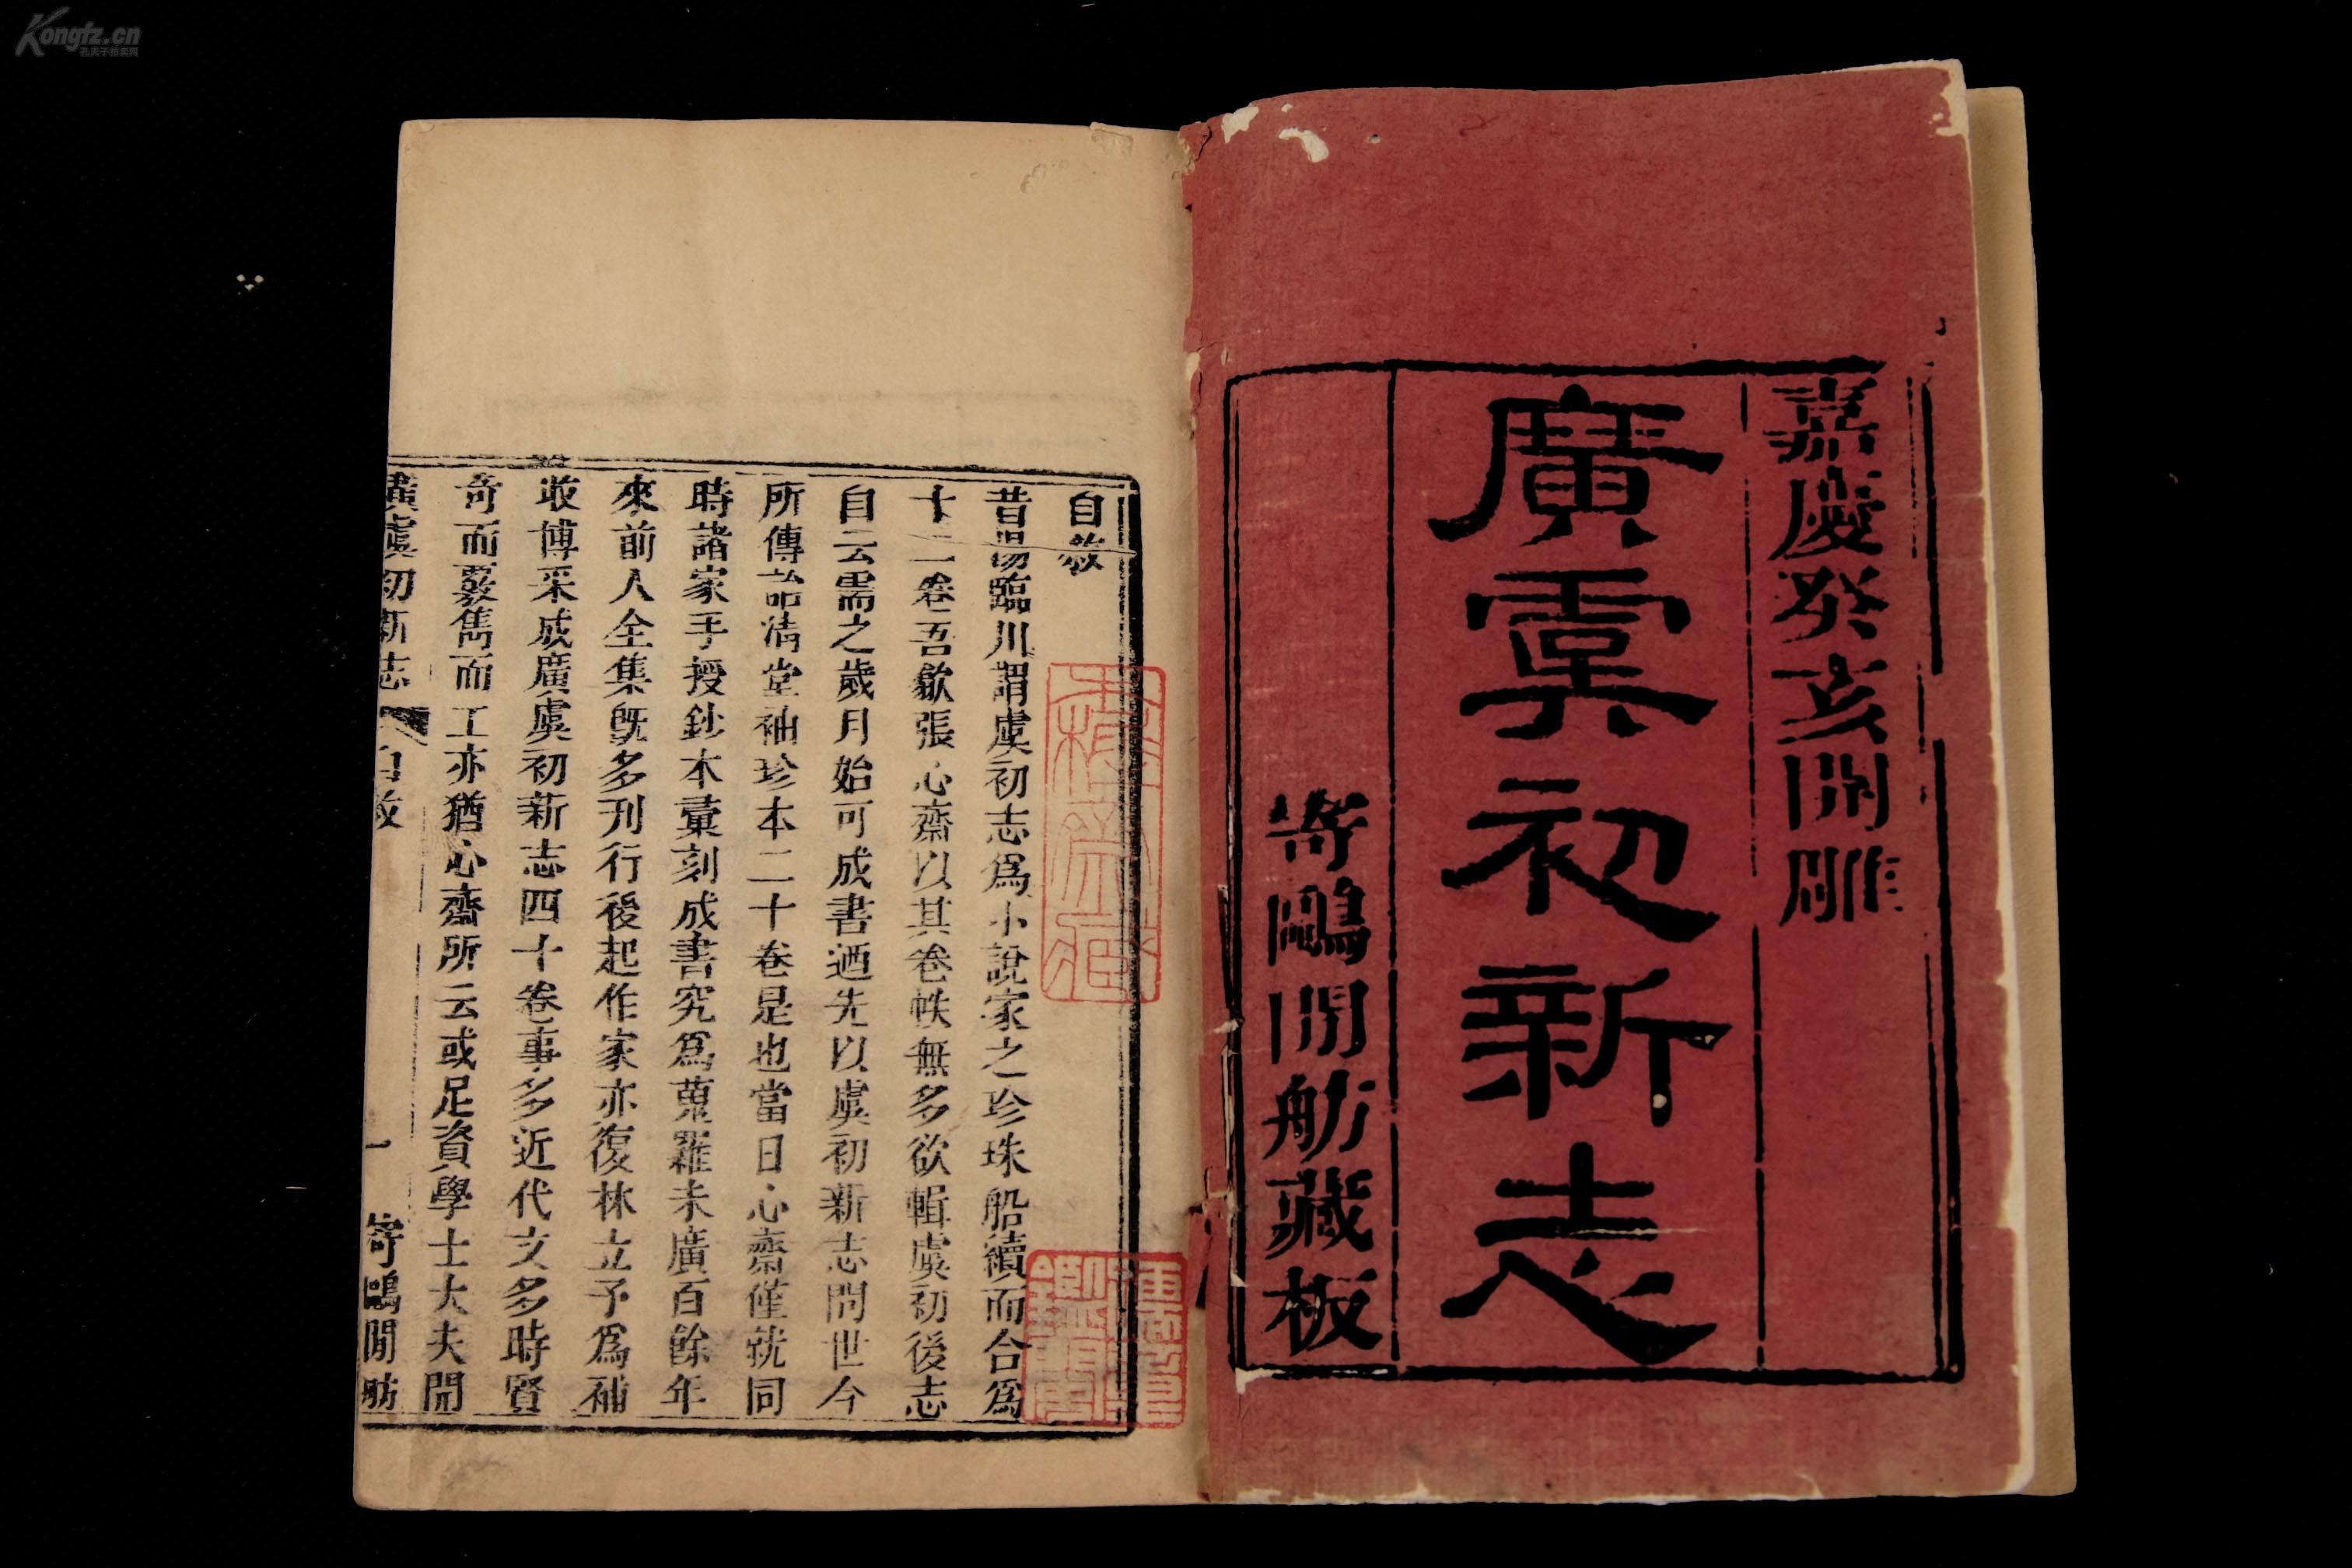 嘉慶癸亥開雕
廣虞初新志
寄鷗閒舫藏板
自敘
昔湯臨川謂虞初志爲小說家之珍珠船續而合爲
十二卷吾歙張心齋以其卷帙無多欲輯虞初後志
自云需之歲月始可成書迺先以虞初新志問世今
所傳詒清堂袖珍本二十卷是也當日心齋僅就同
時諸家手授鈔本彙刻成書究爲蒐羅未廣百餘年
來前人全集旣多刊行後起作家亦復林立予爲補
收博采成廣虞初新志四十卷事多近代文多時賢
奇而覈雋而工亦猶心齋所云或足資學士大夫開
廣虞初新志 自敘 一 寄鷗閒舫
Kongfz.cn
孔夫子拍卖网